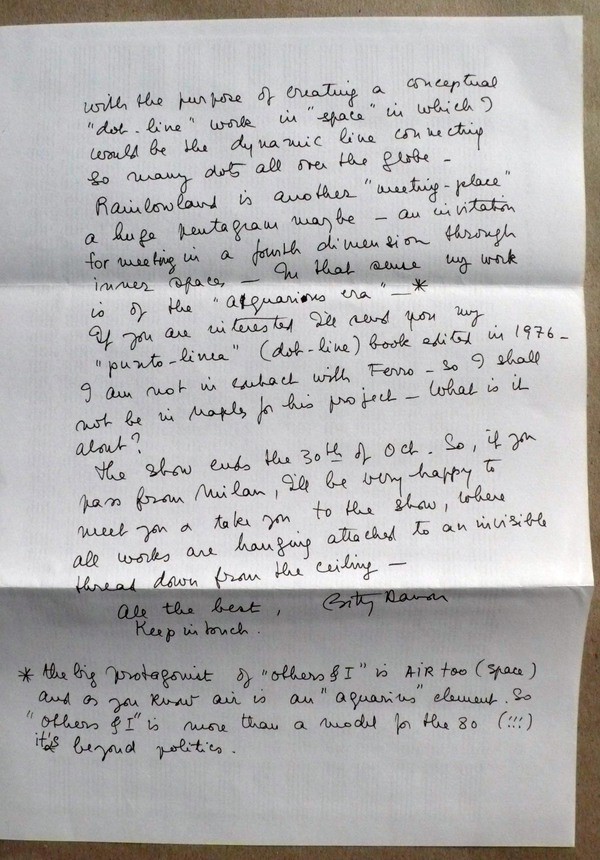 with the purpose of creating a conceptual
"dot-line" work in "space" in which I
would be the dynamic line connecting
so many dots all over the globe -
Rainlowland is another "meeting-place"
a huge pentagram maybe - an invitation
for meeting in a fourth dimension through
inner space - In that sense my work
is of the "Aquarious era" - *
If you are interested I'll send you my
"punto-linea" (dot-line) book edited in 1976 -
I am not in contact with Ferro - so I shall
not be in Naples for his project - What is it
about?
The show ends the 30th of Oct. So, if you
pass from Milan, I'll be very happy to
meet you & take you to the show, where
all works are hanging attached to an invisible
thread down from the ceiling -
All the best,
Keep in touch.
* the big protagonist of "others & I" is AIR too (space)
and as you know air is an "aquarius" element. So
"others & I" is more than a model for the 80 (!!!)
it's beyond politics.